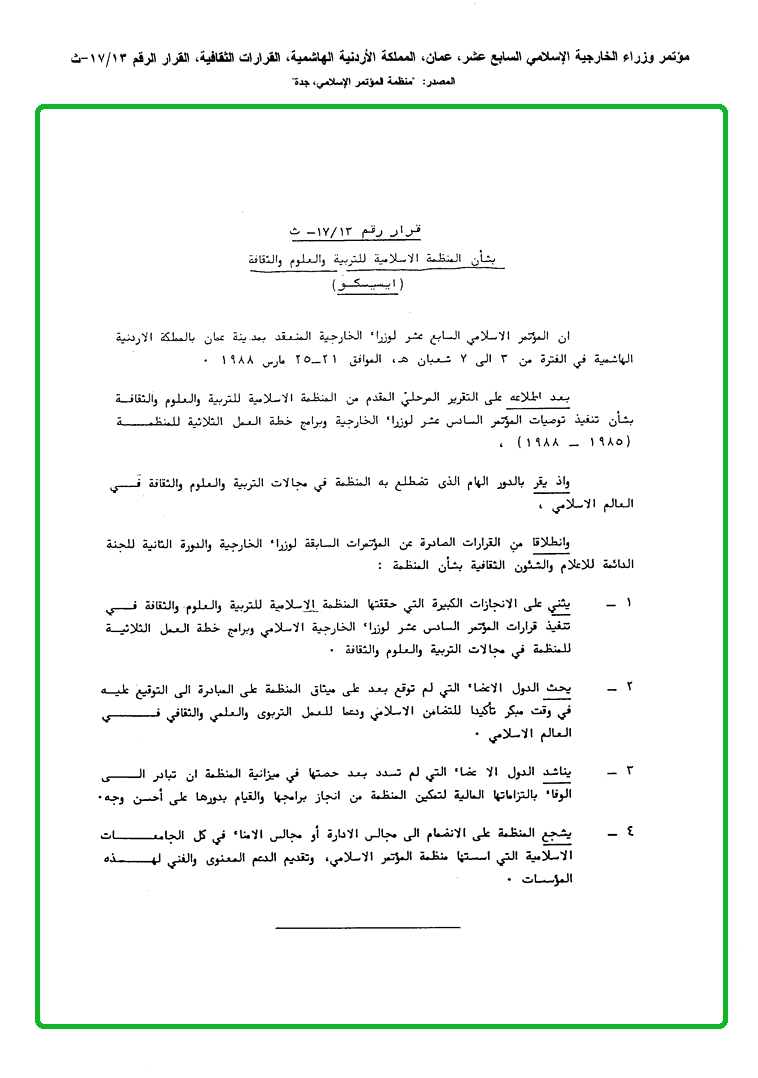 مؤتمر وزراء الخارجية الإسلامي السابع عشر، عمان، المملكة الأردنية الهاشمية، القرارات الثقافية، القرار الرقم ١٧/١٣-ث
المصدر: "منظمة المؤتمر الإسلامي، جدة"
قرار رقم ١٧/١٣- ث
بشأن المنظمة الاسلامية للتربية والعلوم والثقافة
(ايسيسكو)
ان المؤتمر الاسلامي السابع عشر لوزراء الخارجية المنعقد بمدينة عمان بالمملكة الاردنية
الهاشمية في الفترة من ٣ الى ٧ شعبان هـ، الموافق ٢١-٢٥ مارس ١٩٨٨ ٠
بعد اطلاعه على التقرير المرحلي المقدم من المنظمة الاسلامية للتربية والعلوم والثقافة
بشأن تنفيذ توصيات المؤتمر السادس عشر لوزراء الخارجية وبرامج خطة العمل الثلاثية للمنظمة
(١٩٨٥ - ١٩٨٨) ،
واذ يقر بالدور الهام الذى تضطلع به المنظمة في مجالات التربية والعلوم والثقافة في
العالم الاسلامي ،
وانطلاقا من القرارات الصادرة عن المؤتمرات السابقة لوزراء الخارجية والدورة الثانية للجنة
الدائمة للاعلام والشئون الثقافية بشأن المنظمة :
١ - يثني على الانجازات الكبيرة التي حققتها المنظمة الاسلامية للتربية والعلوم والثقافة في
تنفيذ قرارات المؤتمر السادس عشر لوزراء الخارجية الاسلامي وبرامج خطة العمل الثلاثية
للمنظمة في مجالات التربية والعلوم والثقافة ٠
٢ - يحث الدول الاعضاء التي لم توقع بعد على ميثاق المنظمة على المبادرة الى التوقيع عليه
في وقت مبكر تأكيدا للتضامن الاسلامي ودعما للعمل التربوى والعلمي والثقافي في
العالم الاسلامي ٠
٣ - يناشد الدول الاعضاء التي لم تسدد بعد حصتها في ميزانية المنظمة ان تبادر الى
الوفاء بالتزاماتها المالية لتمكين المنظمة من انجاز برامجها والقيام بدورها على أحسن وجه٠
٤ - يشجع المنظمة على الانضمام الى مجالس الادارة أو مجالس الامناء في كل الجامعات
الاسلامية التي اسستها منظمة المؤتمر الاسلامي، وتقديم الدعم المعنوى والفني لهذه
المؤسسات ٠